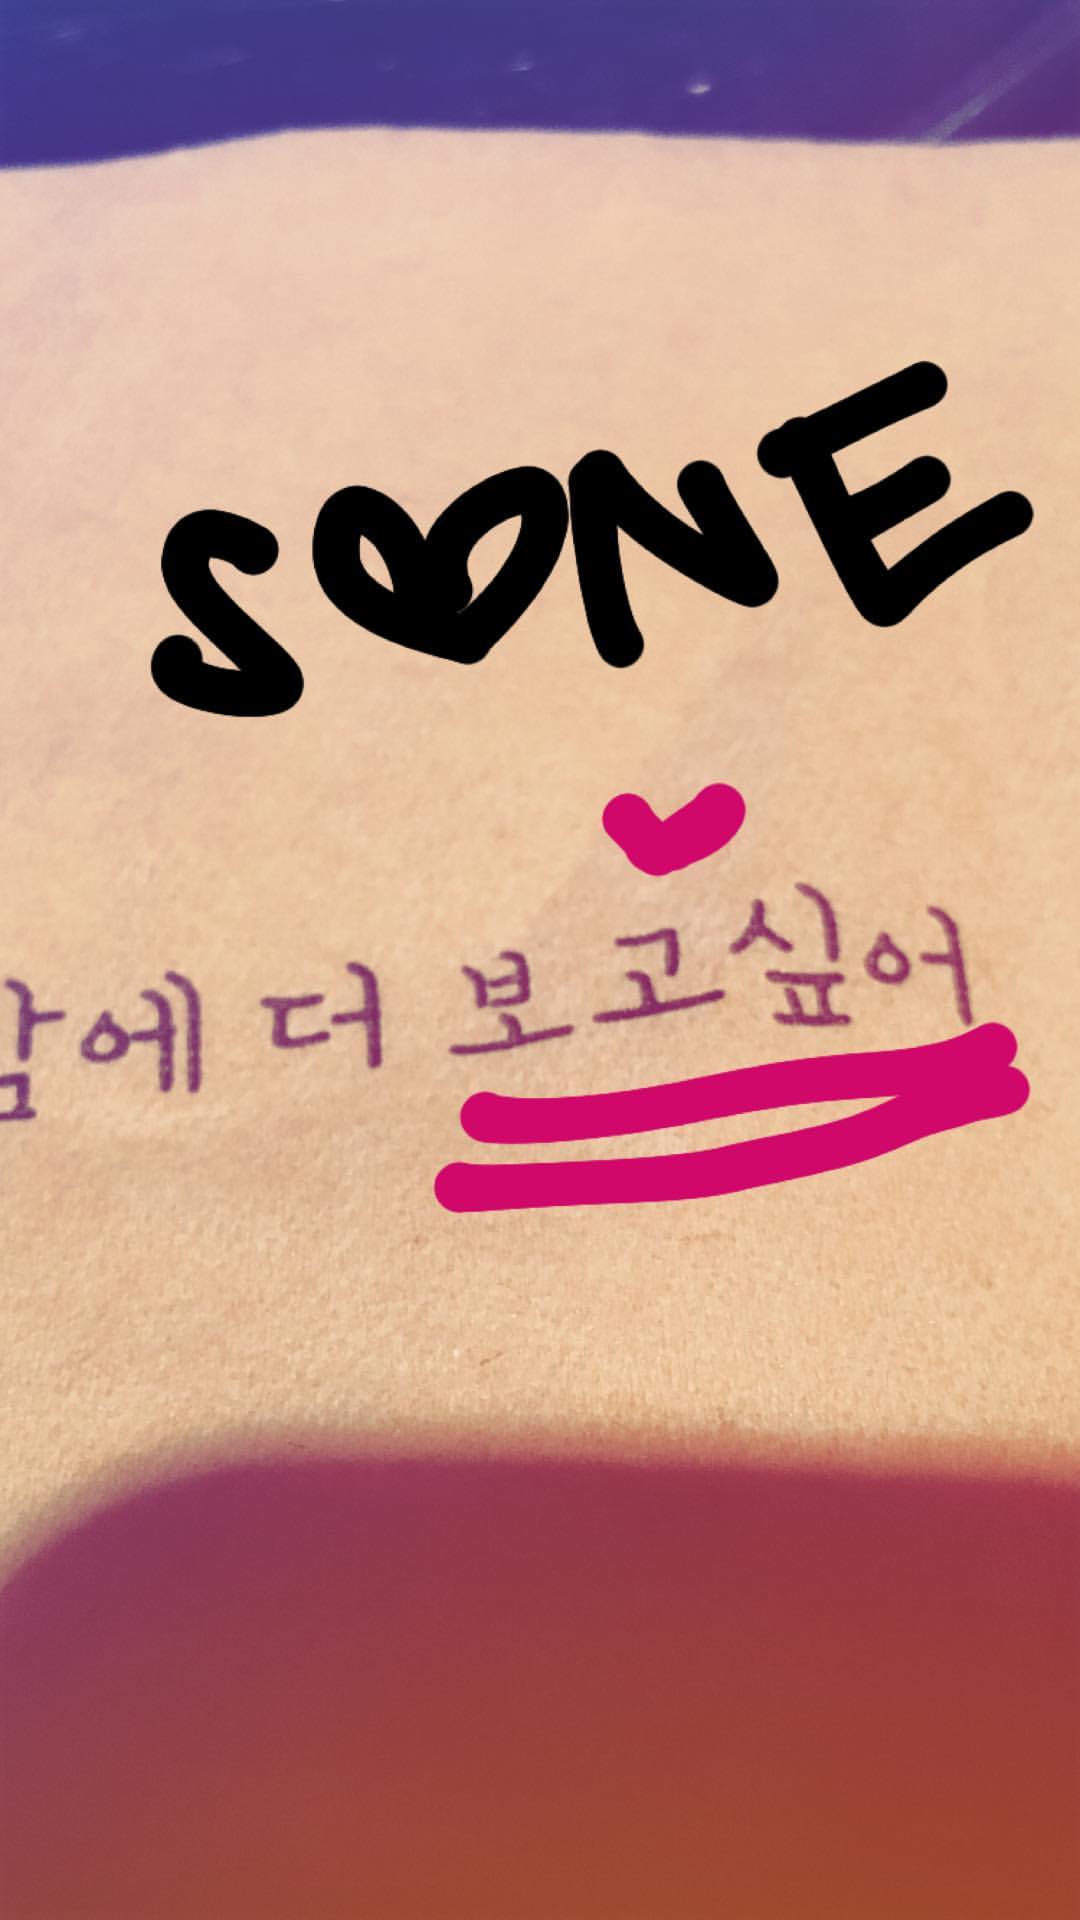 S♥NE
에 더 보고싶어